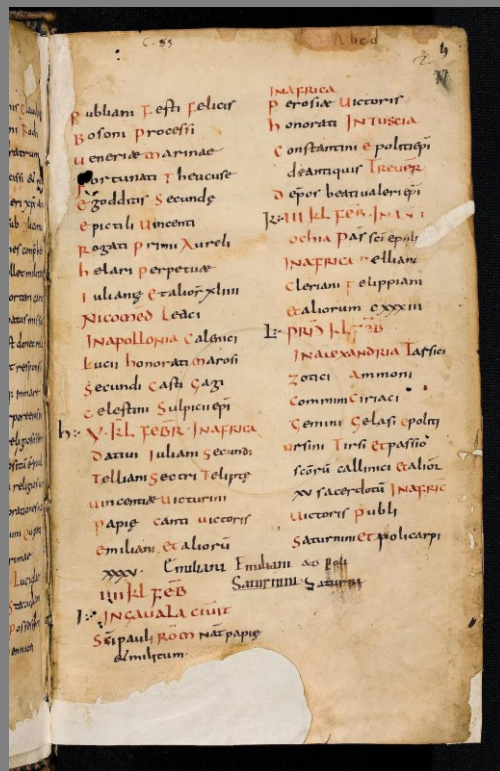 c. 83
Abcd
publiani Festi Felicis
Bosoni Processi
Ueneriæ Marinae
Fortunati Theucuse
Egodditis Secundę
epictili Uincenti
Rogati Primi Aureli
helari perpetuæ
Iulianę Et alior xliiii
Nicomed Leaci
IN apollonia Calenici
Lucii honorati Marosi
Secundi Casti Gagi
Celestini Sulpicii epi
h: V. KL FEBR. IN AFRICA
Datiui Iuliani Secundi
Telliani Sectri Teliptę
uincentiæ Uicturini
papię Canti uictoris
emiliani, Et aliorū
xxxv.
Emiliani Emiliani
Saturnini
IIII KL FEB
I: IN GAUALA CIUIT
Sci pauli Rom nat papię
& militum.
IN AFRICA
perosiæ Uictoris
honorati IN TUSCIA
Constantini & politi epi
de antiquis Treuer
Depos beati ualeri epi
K: III KL FEB. IN ANTI
ochia pas sci
IN AFRICA
Cleriani Felippiani
Et aliorum cxxxiii
L: PRID KL FEB
IN ALEXANDRIA Tarsici
Zotici Ammoni
Commini Ciriaci
Gemini Gelasi epoliti
ursini Tirsi Et passio
scorū callinici Et alior
xv sacerdotū IN AFRIC
Uictoris publi
Saturnini Et policarpi